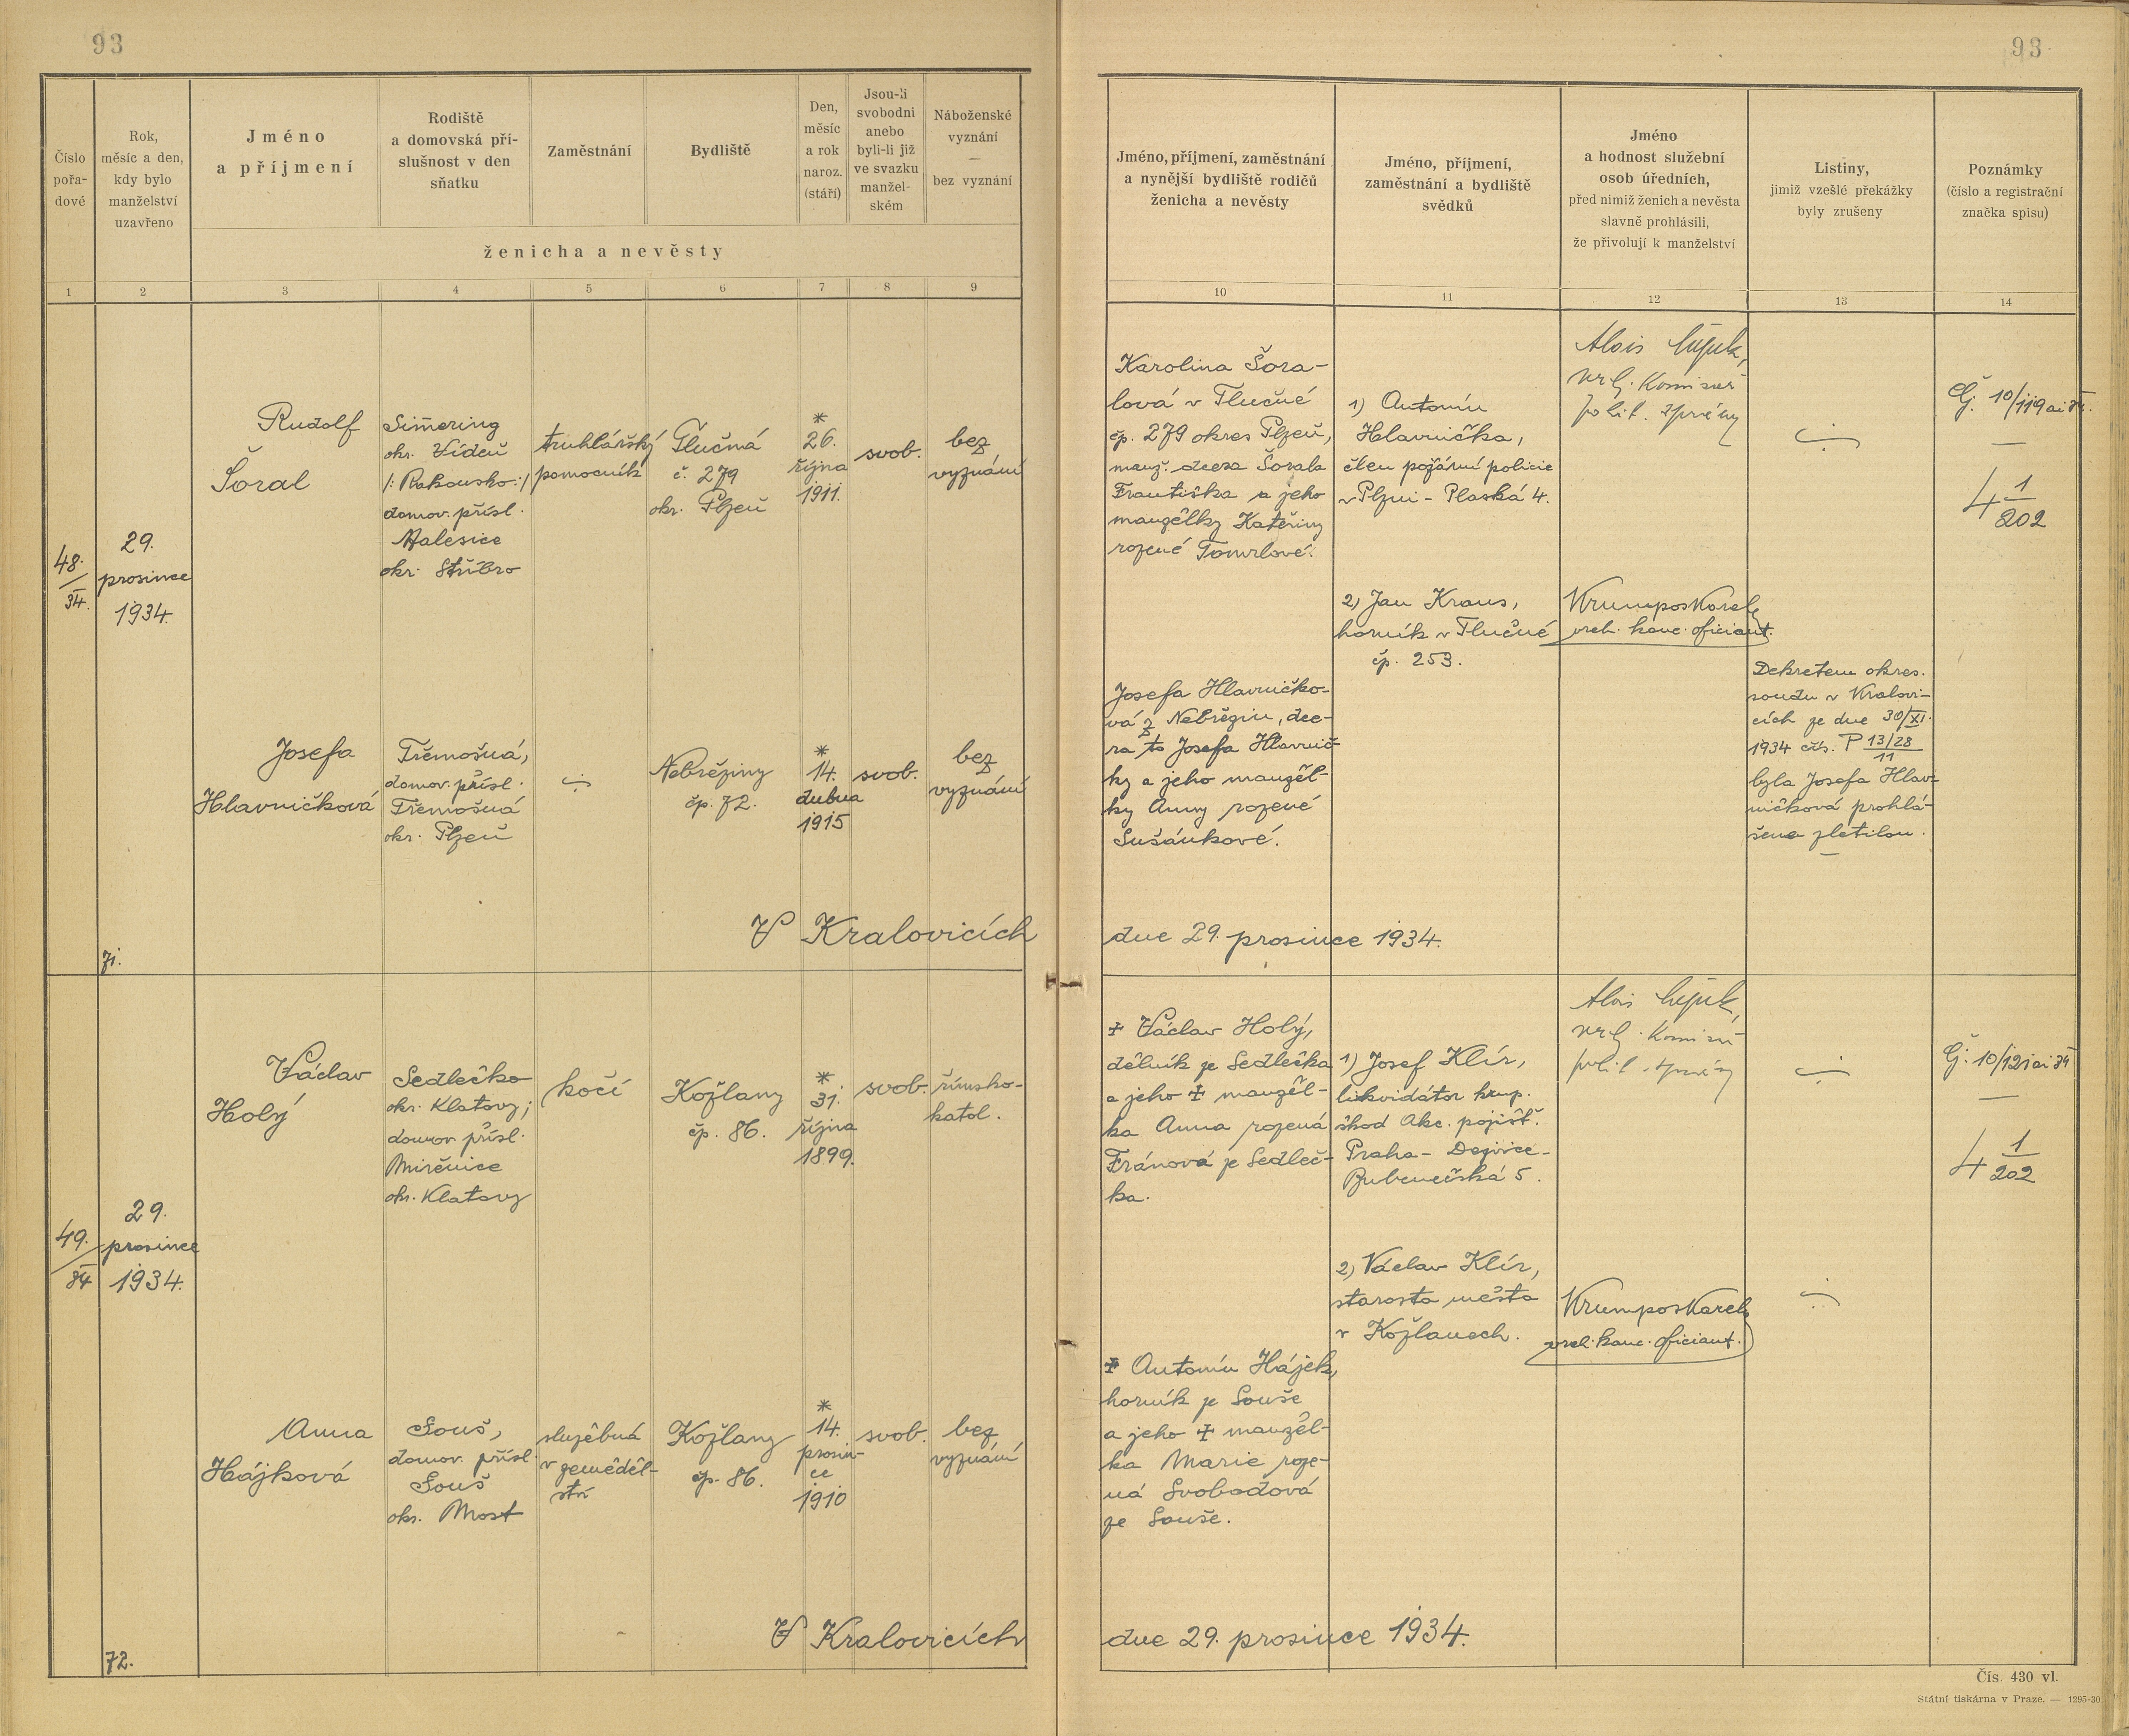 93
93
Číslo
pořa-
dové
Rok,
měsíc a den,
kdy bylo
manželství
uzavřeno
Jméno
a příjmení
Rodiště
a domovská pří-
slušnost v den
sňatku
Zaměstnání
Bydliště
Den,
měsíc
a rok
naroz.
(stáří)
Jsou-li
svobodni
anebo
byli-li již
ve svazku
manžel-
ském
Náboženské
vyznání
—
bez vyznání
ženicha a nevěsty
Jméno, příjmení, zaměstnání
a nynější bydliště rodičů
ženicha a nevěsty
Jméno, příjmení,
zaměstnání a bydliště
svědků
Jméno
a hodnost služební
osob úředních,
před nimiž ženich a nevěsta
slavně prohlásili,
že přivolují k manželství
Listiny,
jimiž vzešlé překážky
byly zrušeny
Poznámky
(číslo a registrační
značka spisu)
1 2 3 4 5 6 7 8 9 10 11 12 13 14
48./34.
29.
prosince
1934.
Rudolf
Šoral
Simering
okr. Vídeň
/: Rakousko :/
domov. přísl.
Malesice
okr. Stříbro
truhlářský
pomocník
Tlučná
č. 279
okr. Plzeň
*
26.
října
1911.
svob.
bez
vyznání
Karolina Šora-
lová v Tlučné
čp. 279 okres Plzeň,
manž. dcera Šorala
Františka a jeho
manželky Kateřiny
rozené Tomrlové.
1) Antonín
Hlavnička,
člen požární policie
v Plzni - Plaská 4.
2) Jan Kraus,
horník v Tlučné
čp. 253.
Alois
vrch. komisař
polit. správy
Krumpos Karel,
vrch. kanc. oficiant.
Čj. 10/119 ai 34.
—
4 1/202
Josefa
Hlavničková
Třemošná,
domov. přísl.
Třemošná
okr. Plzeň
Nebřeziny
čp. 72.
*
14.
dubna
1915
svob.
bez
vyznání
Josefa Hlavničko-
vá z Nebřezin, dce-
ra to Josefa Hlavnič-
ky a jeho manžel-
ky Anny rozené
Sušánkové.
Dekretem okres.
soudu v Kralovi-
cích ze dne 30/XI.
1934 čís. P 13/28
11
byla Josefa Hlav-
ničková prohlá-
šena zletilou.
71.
V Kralovicích
dne 29. prosince 1934.
49./34
29.
prosince
1934.
Václav
Holý
Sedlečko
okr. Klatovy;
domov přísl.
Mirěnice
okr. Klatovy
kočí
Kožlany
čp. 86.
*
31.
října
1899.
svob.
římsko-
katol.
+ Václav Holý,
dělník ze Sedlečka
a jeho + manžel-
ka Anna rozená
Fránová ze Sedleč-
ka.
1) Josef Klír,
likvidátor krup.
škod Akc. pojišť.
Praha - Dejvice -
Bubenečská 5.
2) Václav Klír,
starosta města
v Kožlanech.
Alois
vrch. komisař
polit. správy
Krumpos Karel,
vrch. kanc. oficiant.
Čj. 10/121 ai 34
—
4 1/202
Anna
Hájková
Souš,
domov. přísl.
Souš
okr. Most
služebná
v zeměděl-
ství
Kožlany
čp. 86.
*
14.
prosin-
ce
1910
svob.
bez
vyznání
+ Antonín Hájek,
horník ze Souše
a jeho + manžel-
ka Marie roze-
ná Svobodová
ze Souše.
72.
V Kralovicích
dne 29. prosince 1934.
Čís. 430 vl.
Státní tiskárna v Praze. — 1295-30